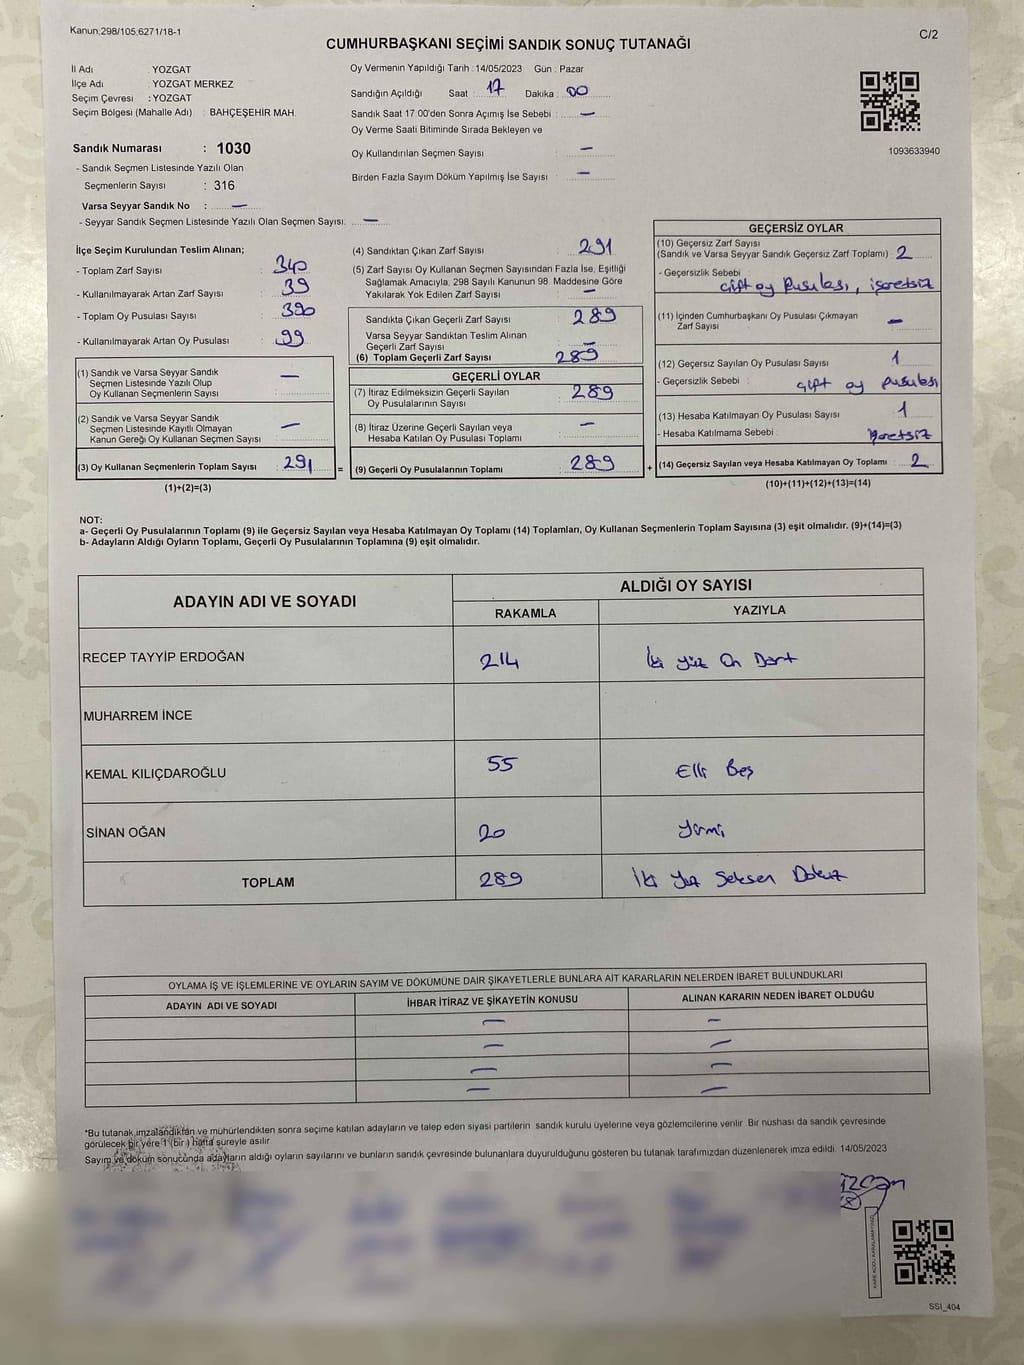 Kanun;298/105,6271/18-1
C/2
CUMHURBAŞKANI SEÇİMİ SANDIK SONUÇ TUTANAĞI
İl Adı YOZGAT
İlçe Adı : YOZGAT MERKEZ
Seçim Çevresi : YOZGAT
Seçim Bölgesi (Mahalle Adı) : BAHÇEŞEHİR MAH.
Sandık Numarası : 1030
- Sandık Seçmen Listesinde Yazılı Olan
Seçmenlerin Sayısı : 316
Varsa Seyyar Sandık No : —
- Seyyar Sandık Seçmen Listesinde Yazılı Olan Seçmen Sayısı: —
Oy Vermenin Yapıldığı Tarih : 14/05/2023 Gün : Pazar
Sandığın Açıldığı Saat : 17 Dakika : 00
Sandık Saat 17:00'den Sonra Açımış İse Sebebi : —
Oy Verme Saati Bitiminde Sırada Bekleyen ve
Oy Kullandırılan Seçmen Sayısı : —
Birden Fazla Sayım Döküm Yapılmış İse Sayısı : —
1093633940
İlçe Seçim Kurulundan Teslim Alınan;
- Toplam Zarf Sayısı : 340
- Kullanılmayarak Artan Zarf Sayısı : 39
- Toplam Oy Pusulası Sayısı : 390
- Kullanılmayarak Artan Oy Pusulası : 99
(1) Sandık ve Varsa Seyyar Sandık
Seçmen Listesinde Yazılı Olup
Oy Kullanan Seçmenlerin Sayısı : —
(2) Sandık ve Varsa Seyyar Sandık
Seçmen Listesinde Kayıtlı Olmayan
Kanun Gereği Oy Kullanan Seçmen Sayısı —
(3) Oy Kullanan Seçmenlerin Toplam Sayısı : 291
(1)+(2)=(3)
(4) Sandıktan Çıkan Zarf Sayısı : 291
(5) Zarf Sayısı Oy Kullanan Seçmen Sayısından Fazla İse, Eşitliği
Sağlamak Amacıyla, 298 Sayılı Kanunun 98. Maddesine Göre
Yakılarak Yok Edilen Zarf Sayısı : —
Sandıkta Çıkan Geçerli Zarf Sayısı : 289
Varsa Seyyar Sandıktan Teslim Alınan
Geçerli Zarf Sayısı : —
(6) Toplam Geçerli Zarf Sayısı : 289
GEÇERLİ OYLAR
(7) İtiraz Edilmeksizin Geçerli Sayılan
Oy Pusulalarının Sayısı : 289
(8) İtiraz Üzerine Geçerli Sayılan veya
Hesaba Katılan Oy Pusulası Toplamı : —
= (9) Geçerli Oy Pusulalarının Toplamı : 289 +
GEÇERSİZ OYLAR
(10) Geçersiz Zarf Sayısı
(Sandık ve Varsa Seyyar Sandık Geçersiz Zarf Toplamı) : 2
- Geçersizlik Sebebi
: çift oy Pusulası, işaretsiz
(11) İçinden Cumhurbaşkanı Oy Pusulası Çıkmayan
Zarf Sayısı : —
(12) Geçersiz Sayılan Oy Pusulası Sayısı : 1
- Geçersizlik Sebebi : çift oy pusulası
(13) Hesaba Katılmayan Oy Pusulası Sayısı : 1
- Hesaba Katılmama Sebebi : işaretsiz
(14) Geçersiz Sayılan veya Hesaba Katılmayan Oy Toplamı : 2
(10)+(11)+(12)+(13)=(14)
NOT:
a- Geçerli Oy Pusulalarının Toplamı (9) ile Geçersiz Sayılan veya Hesaba Katılmayan Oy Toplamı (14) Toplamları, Oy Kullanan Seçmenlerin Toplam Sayısına (3) eşit olmalıdır. (9)+(14)=(3)
b- Adayların Aldığı Oyların Toplamı, Geçerli Oy Pusulalarının Toplamına (9) eşit olmalıdır.
ADAYIN ADI VE SOYADI
ALDIĞI OY SAYISI
RAKAMLA YAZIYLA
RECEP TAYYİP ERDOĞAN 214 İki yüz On Dört
MUHARREM İNCE
KEMAL KILIÇDAROĞLU 55 Elli Beş
SİNAN OĞAN 20 Yirmi
TOPLAM 289 İki Yüz Seksen Dokuz
OYLAMA İŞ VE İŞLEMLERİNE VE OYLARIN SAYIM VE DÖKÜMÜNE DAİR ŞİKAYETLERLE BUNLARA AİT KARARLARIN NELERDEN İBARET BULUNDUKLARI
ADAYIN ADI VE SOYADI İHBAR İTİRAZ VE ŞİKAYETİN KONUSU ALINAN KARARIN NEDEN İBARET OLDUĞU
— —
— —
— —
— —
*Bu tutanak,imzalandıktan ve mühürlendikten sonra seçime katılan adayların ve talep eden siyasi partilerin sandık kurulu üyelerine veya gözlemcilerine verilir. Bir nüshası da sandık çevresinde
görülecek bir yere 1 (bir ) hafta süreyle asılır.
Sayım ve döküm sonucunda adayların aldığı oyların sayılarını ve bunların sandık çevresinde bulunanlara duyurulduğunu gösteren bu tutanak tarafımızdan düzenlenerek imza edildi. 14/05/2023
SSI_404